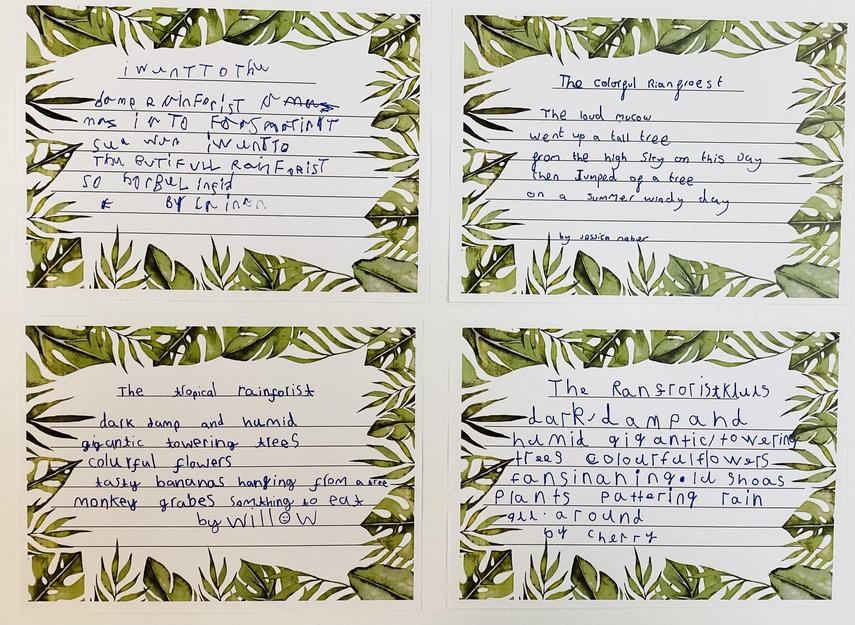 i wunt TO Thu
damp RainForist
mas in TO
i wunt To
Thu BUTiFULL RainForist
so
BY
The Colorful Riangroest
The loud mucow
went up a tall tree
from the high Sky on this Day
then Jumped of a tree
on a summer windy day
by Jessica naber
The tropical rainforist
dark damp and humid
gigantic towering trees
colurful flowers
tasty bananas hanging from a tree
monkey grabes somthing to eat
by Willow
The Ranfroristkluls
dark, damp and
humid gigantic/towering
trees colourful flowers
fansinahing. old shoas
Plants pattering rain
all around
by cherry